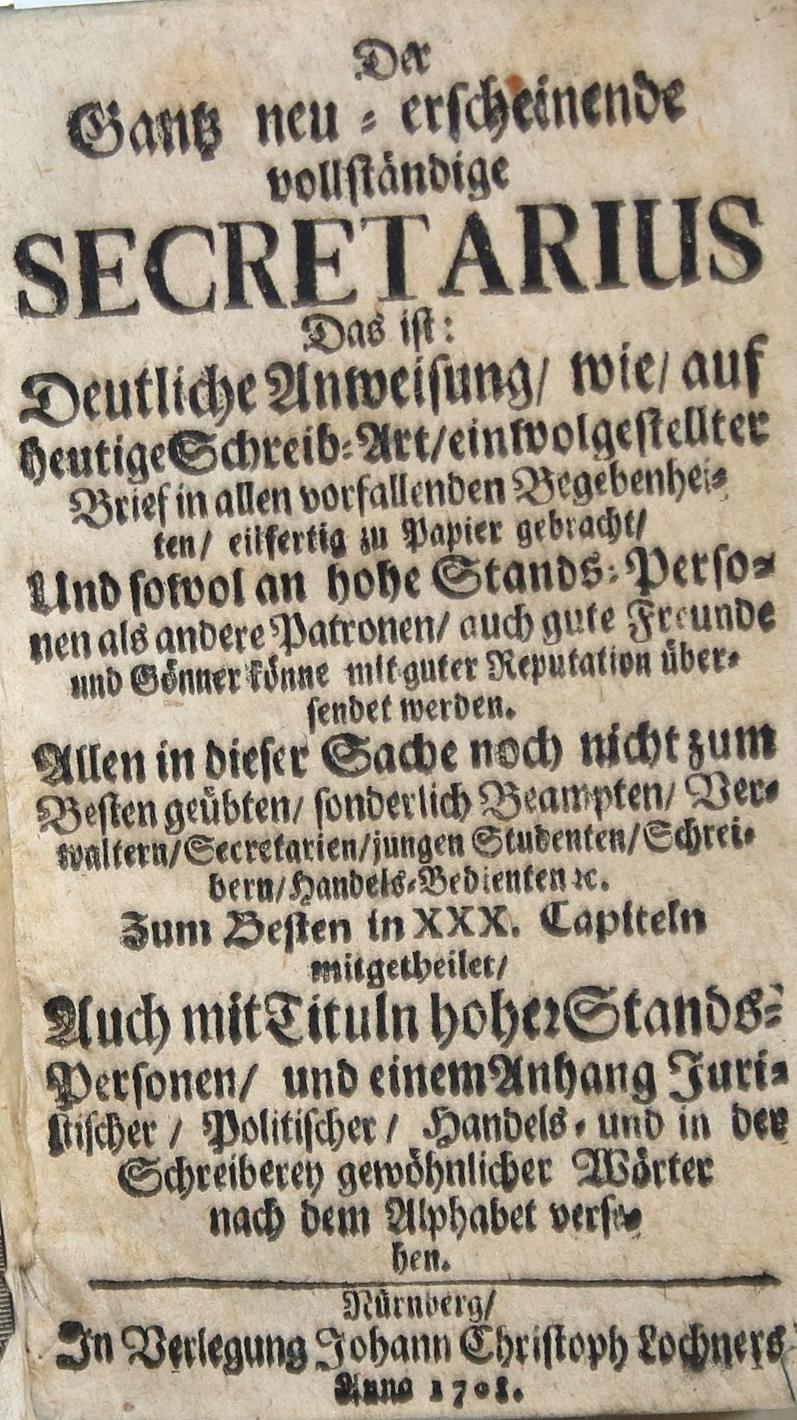 Der
Gantz neu⸗erscheinende
vollständige
SECRETARIUS
Das ist:
Deutliche Anweisung/ wie/ auf
heutige Schreib⸗Art/ein wolgestellter
Brief in allen vorfallenden Begebenhei⸗
ten/ eilfertig zu Papier gebracht/
Und sowol an hohe Stands⸗Perso⸗
nen als andere Patronen/ auch gute Freunde
und Gönner könne mit guter Reputation über⸗
sendet werden.
Allen in dieser Sache noch nicht zum
Besten geübten/ sonderlich Beampten/ Ver⸗
waltern/Secretarien/jungen Studenten/Schrei⸗
bern/Handels⸗Bedienten ꝛc.
Zum Besten in XXX. Capiteln
mitgetheilet/
Auch mit Tituln hoher Stands⸗
Personen/ und einem Anhang Juri⸗
stischer/ Politischer/ Handels⸗ und in der
Schreiberey gewöhnlicher Wörter
nach dem Alphabet verse⸗
hen.
Nürnberg/
In Verlegung Johann Christoph Lochners
Anno